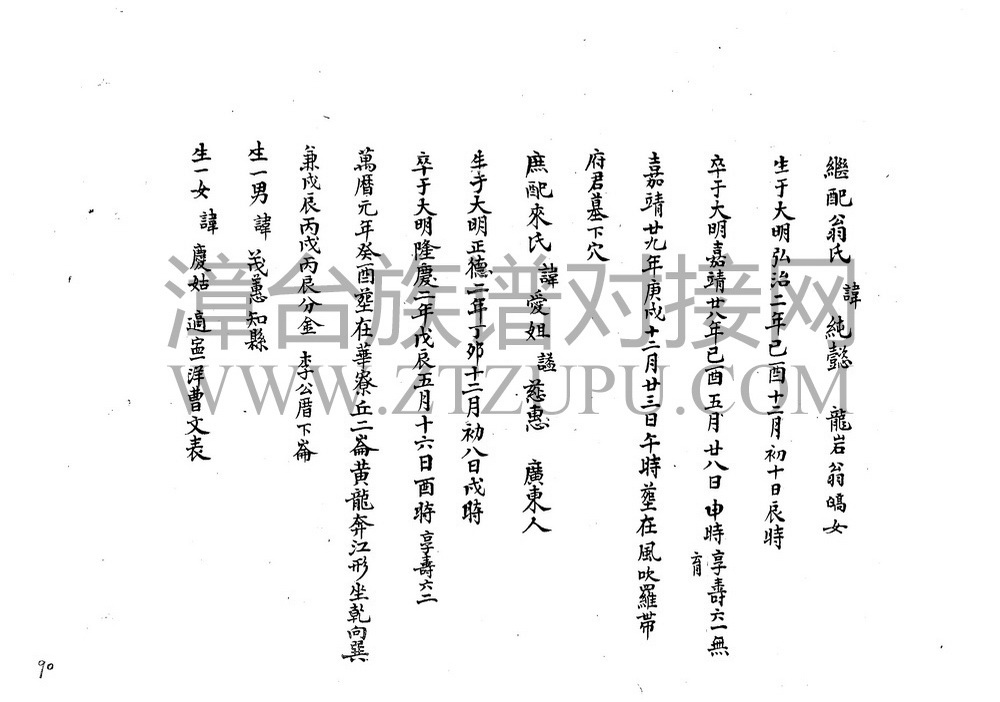 繼配翁氏 諱純懿 龍岩翁皜女
生于大明弘治二年己酉十二月初十日辰時
卒于大明嘉靖廿八年己酉五月廿八日申時享壽六一無育
嘉靖廿九年庚戌十二月廿三日午時塟在風吹羅帶
府君墓下穴
庶配來氏 諱愛姐 謚慈惠 廣東人
生于大明正德二年丁卯十二月初八日戌時
卒于大明隆慶二年戊辰五月十六日酉時享壽六二
萬曆元年癸酉塟在華寮丘二崙黄龍奔江形坐乾向巽
兼戌辰丙戌丙辰分金 李公厝下崙
生一男 諱 茂蕙知縣
生一女 諱 慶姑 適 洋曹文表
90
漳台族谱对接网
WWW.ZTZUPU.COM